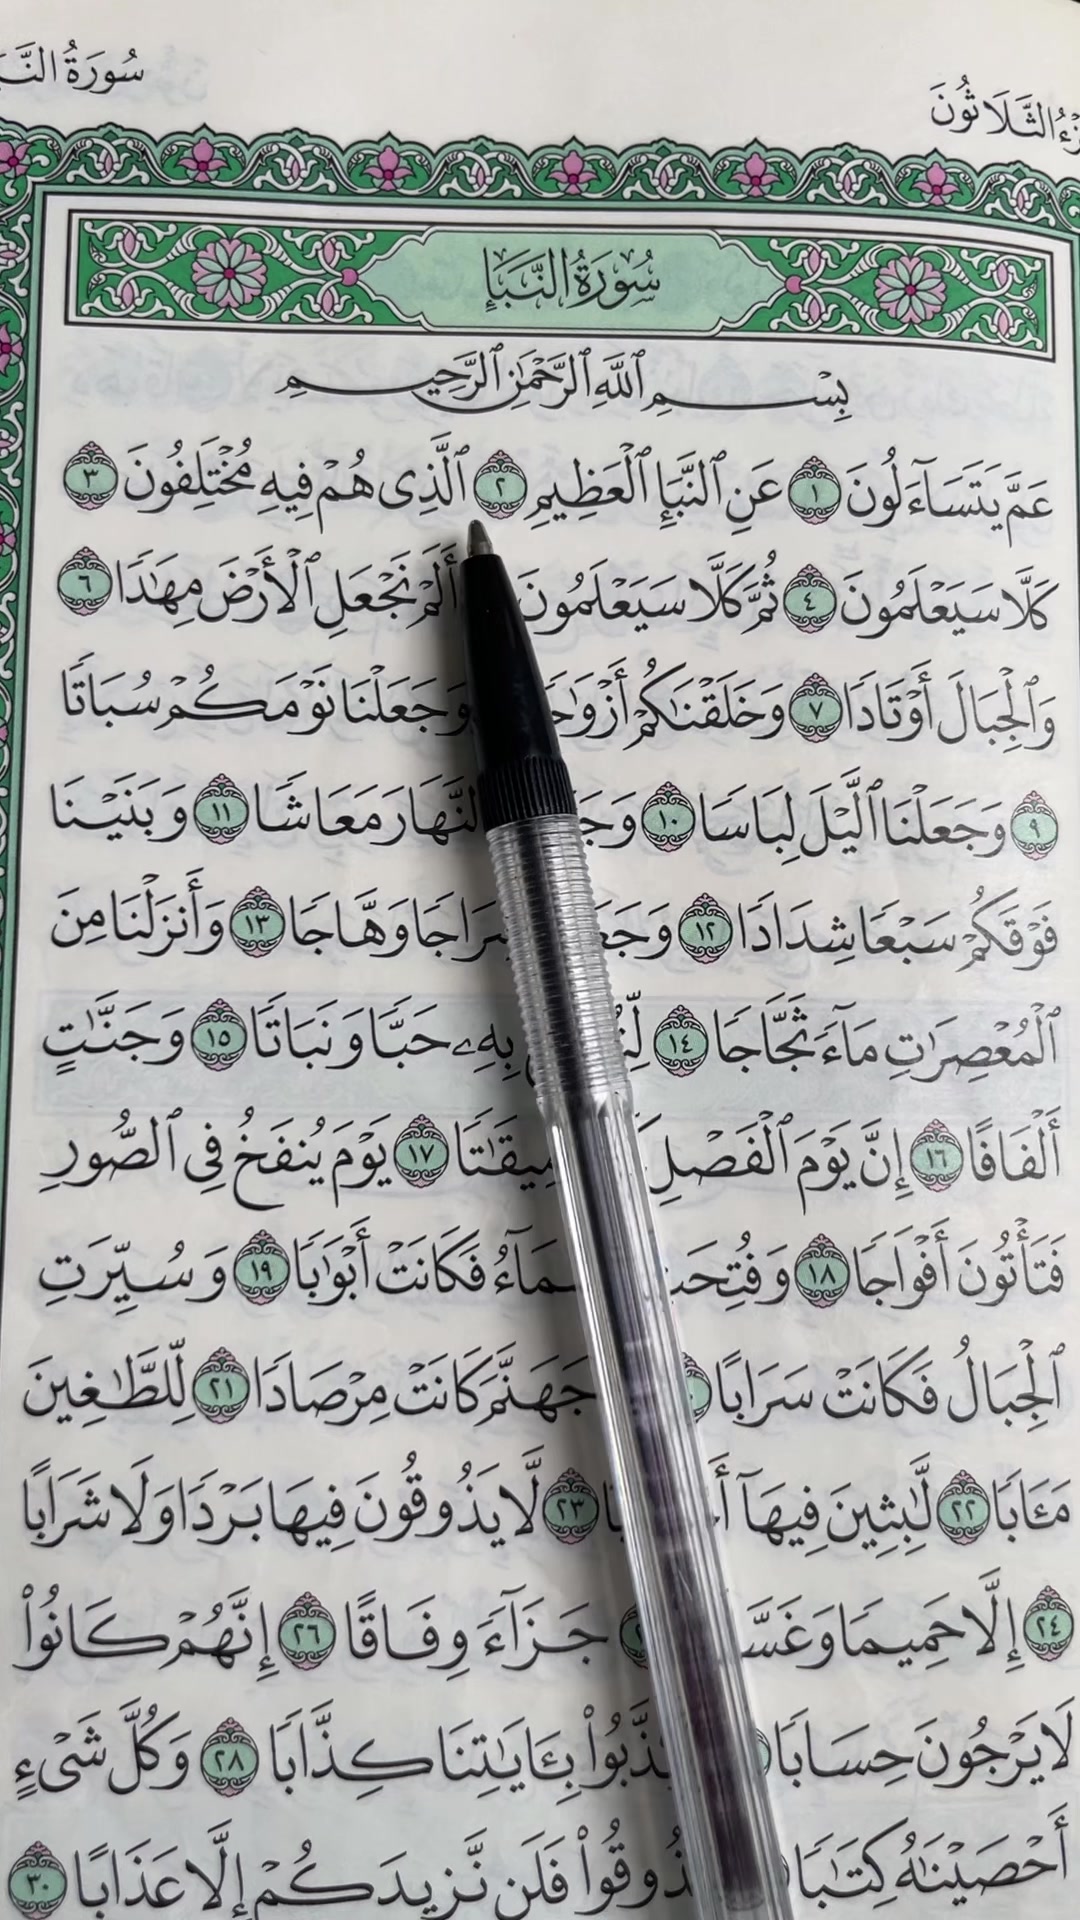 سُورَةُ النَّبَ
الثَّلَاثُونَ
سُورَةُ النَّبَإِ
بِسْمِ ٱللَّهِ ٱلرَّحْمَٰنِ ٱلرَّحِيمِ
عَمَّ يَتَسَآءَلُونَ ١ عَنِ ٱلنَّبَإِ ٱلْعَظِيمِ ٢ ٱلَّذِى هُمْ فِيهِ مُخْتَلِفُونَ ٣
كَلَّا سَيَعْلَمُونَ ٤ ثُمَّ كَلَّا سَيَعْلَمُونَ أَلَمْ نَجْعَلِ ٱلْأَرْضَ مِهَٰدًا ٦
وَٱلْجِبَالَ أَوْتَادًا ٧ وَخَلَقْنَٰكُمْ وَجَعَلْنَا نَوْمَكُمْ سُبَاتًا
٩ وَجَعَلْنَا ٱلَّيْلَ لِبَاسًا ١٠ لنَّهَارَ مَعَاشًا ١١ وَبَنَيْنَا
فَوْقَكُمْ سَبْعًا شِدَادًا ١٢ وَهَّاجًا ١٣ وَأَنزَلْنَا مِنَ
ٱلْمُعْصِرَٰتِ مَآءً ثَجَّاجًا ١٤ بِهِۦ حَبًّا وَنَبَاتًا ١٥ وَجَنَّٰتٍ
أَلْفَافًا ١٦ إِنَّ يَوْمَ ٱلْفَصْلِ مِيقَٰتًا ١٧ يَوْمَ يُنفَخُ فِى ٱلصُّورِ
فَتَأْتُونَ أَفْوَاجًا ١٨ فَكَانَتْ أَبْوَٰبًا ١٩ وَسُيِّرَتِ
ٱلْجِبَالُ فَكَانَتْ سَرَابًا جَهَنَّمَ كَانَتْ مِرْصَادًا ٢١ لِّلطَّٰغِينَ
مَـَٔابًا ٢٢ لَّٰبِثِينَ فِيهَآ ٢٣ لَّا يَذُوقُونَ فِيهَا بَرْدًا وَلَا شَرَابًا
٢٤ إِلَّا حَمِيمًا جَزَآءً وِفَاقًا ٢٦ إِنَّهُمْ كَانُوا۟
لَا يَرْجُونَ حِسَابًا بِـَٔايَٰتِنَا كِذَّابًا ٢٨ وَكُلَّ شَىْءٍ
أَحْصَيْنَٰهُ كِتَٰبًا فَلَن نَّزِيدَكُمْ إِلَّا عَذَابًا ٣٠